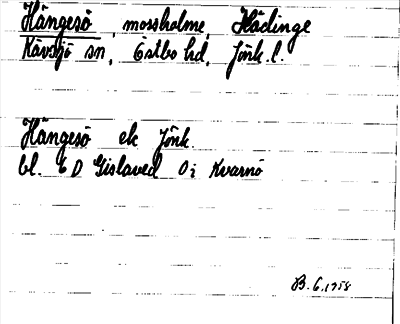 Hängesö, mossholme, Hädinge
Kävsjö sn, Östbo hd, Jönk. l.
Hängesö ek Jönk.
bl. 6 D Gislaved Oi Kvarnö
B. G. 1958